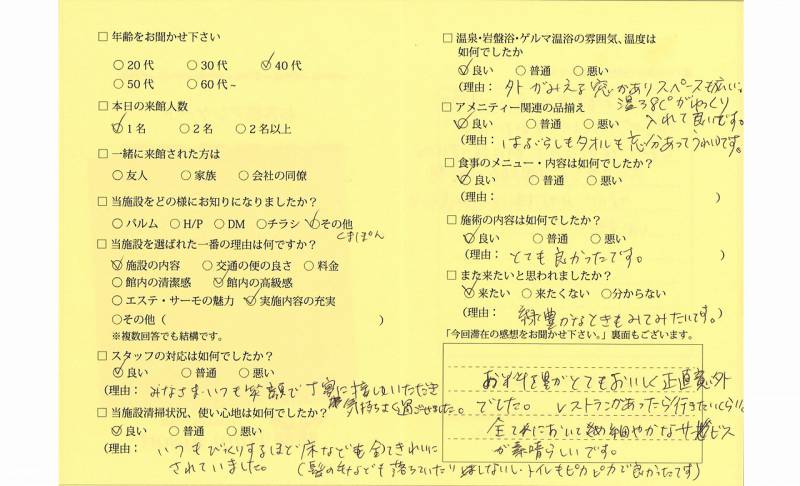 □ 年齢をお聞かせ下さい
○20代 ○30代 ○40代
○50代 ○60代~
□ 本日の来館人数
○1名 ○2名 ○2名以上
□ 一緒に来館された方は
○友人 ○家族 ○会社の同僚
□ 当施設をどの様にお知りになりましたか?
○パルム ○H/P ○DM ○チラシ ○その他
くまぽん
□ 当施設を選ばれた一番の理由は何ですか?
○施設の内容 ○交通の便の良さ ○料金
○館内の清潔感 ○館内の高級感
○エステ・サーモの魅力 ○実施内容の充実
○その他 ( )
※複数回答でも結構です。
□ スタッフの対応は如何でしたか?
○良い ○普通 ○悪い
(理由: みなさまいつも笑顔で丁寧に接していただき
気持ちよく過ごせました。)
□ 当施設清掃状況、使い心地は如何でしたか?
○良い ○普通 ○悪い
(理由: いつもびっくりするほど床なども全てきれいに
されていました。(髪の毛なども落ちていたりはしないし・トイレもピカピカで良かったです)
□ 温泉・岩盤浴・ゲルマ温浴の雰囲気、温度は
如何でしたか
○良い ○普通 ○悪い
(理由: 外がみえる窓がありスペースも広い。
温38℃がゆっくり
入れて良いです。)
□ アメニティー関連の品揃え
○良い ○普通 ○悪い
(理由: はぶらしもタオルも充分あってうれしいです。)
□ 食事のメニュー・内容は如何でしたか?
○良い ○普通 ○悪い
(理由: )
□ 施術の内容は如何でしたか?
○良い ○普通 ○悪い
(理由: とても良かったです。 )
□ また来たいと思われましたか?
○来たい ○来たくない ○分からない
(理由: 緑豊かなときもみてみたいです。)
「今回滞在の感想をお聞かせ下さい。」裏面もございます。
お料理がとてもおいしく正直意外
でした。レストランがあったら行きたいくらい。
全てにおいてきめ細やかなサービス
が素晴らしいです。